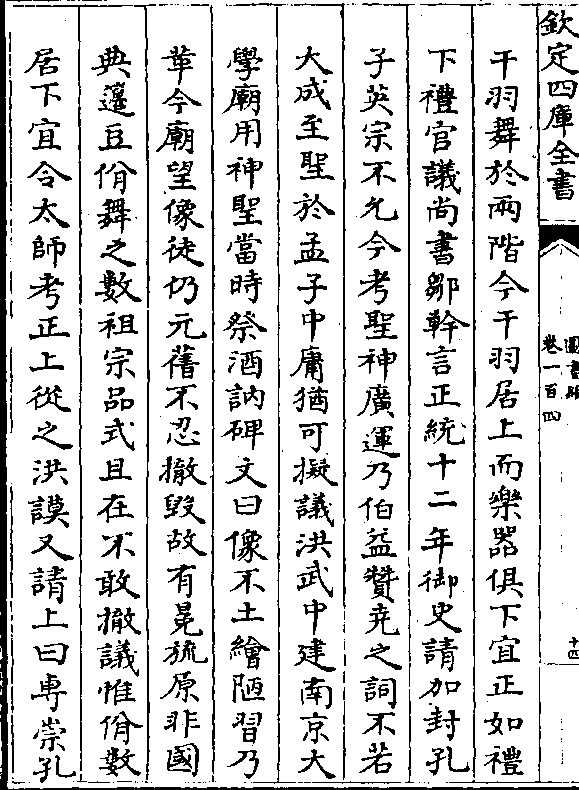 欽定四庫全書
圖書編
卷一百四
十四
干羽舞於兩階今干羽居上而樂器俱下宜正如禮
下禮官議尚書鄒幹言正統十二年御史請加封孔
子英宗不允今考聖神廣運乃伯益贊堯之詞不若
大成至聖於孟子中庸猶可擬議洪武中建南京大
學廟用神聖當時祭酒訥碑文曰像不土繪陋習乃
革今廟望像徒仍元舊不忍撤毀故有冕旒原非國
典籩豆佾舞之數祖宗品式且在不敢撤議惟佾數
居下宜令太師考正上從之洪謨又請上曰專崇孔